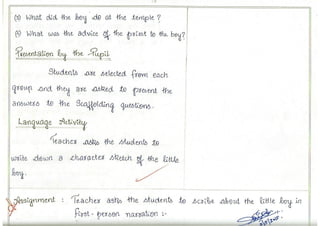 (3) What did the boy do at the temple?
(4) What was the advice of the priest to the boy?
Presentation by the Pupil
Students are selected from each
group and they are asked to present the
answers to the Scaffolding questions.
Language Activity
Teacher asks the students to
write down a character sketch of the little
boy.
Assignment : Teacher asks the students to scribe about the little boy in
first-person narration :-